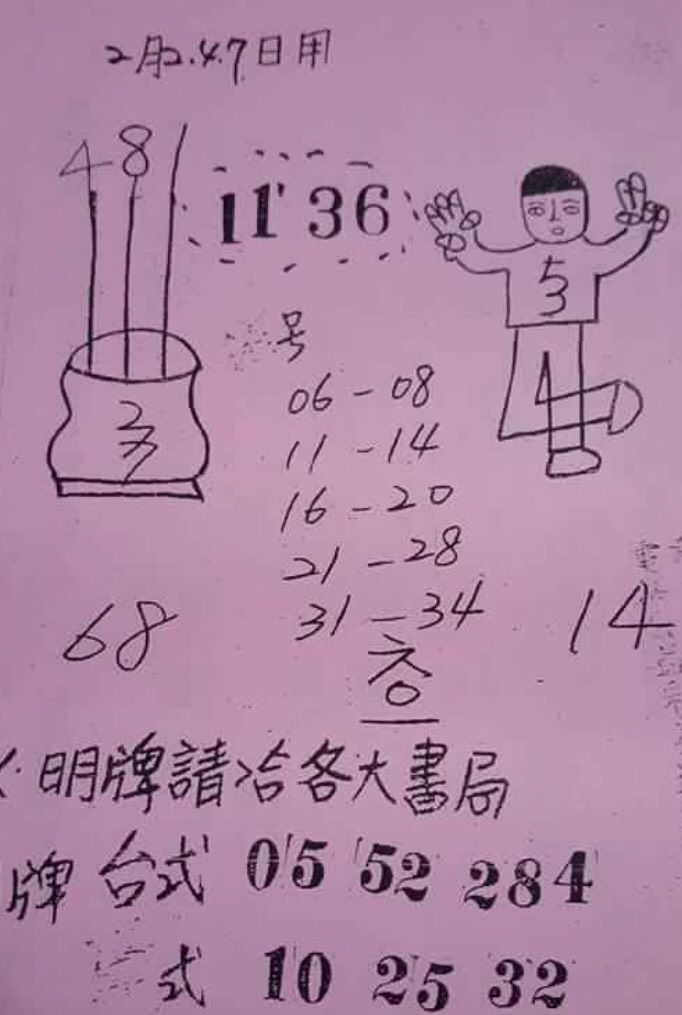 2月2.4.7日用
4 8
11 36
号
5
3
06-08
11-14
4
2
16-20
21-28
31-34
68
14
明牌請洽各大書局
牌 台式 05 52 284
式 10 25 32